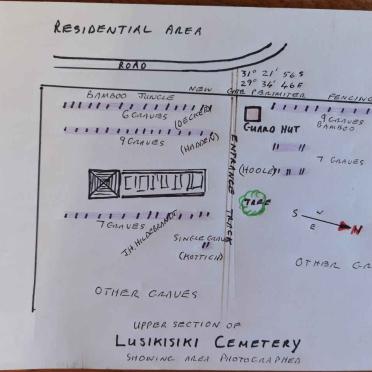 RESIDENTIAL AREA
ROAD
31° 21' 56 S
29° 34' 46 E
BAMBOO JUNGLE
NEW GATE PERIMITER FENCING
6 GRAVES
(DECKER)
9 GRAVES
(HADDEN)
GUARD HUT
9 GRAVES
BAMBOO
7 GRAVES
(HOOLE)
ENTRANCE TRACK
TREE
S W
E N
7 GRAVES
J.H. HILDEBRANDT
SINGLE GRAVE
(KOTTICH)
OTHER GRAVES
OTHER GR
UPPER SECTION OF
LUSIKISIKI CEMETERY
SHOWING AREA PHOTOGRAPHED